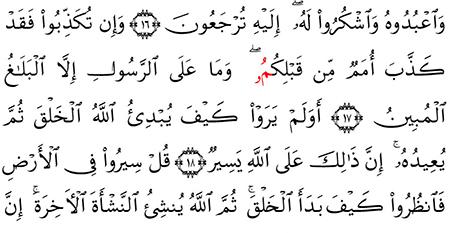 وَٱعْبُدُوهُ وَٱشْكُرُواْ لَهُۥٓۖ إِلَيْهِ تُرْجَعُونَ ١٦ وَإِن تُكَذِّبُواْ فَقَدْ
كَذَّبَ أُمَمٌ مِّن قَبْلِكُمُۥۖ وَمَا عَلَى ٱلرَّسُولِ إِلَّا ٱلْبَلَٰغُ
ٱلْمُبِينُ ١٧ أَوَلَمْ يَرَوْاْ كَيْفَ يُبْدِئُ ٱللَّهُ ٱلْخَلْقَ ثُمَّ
يُعِيدُهُۥٓۚ إِنَّ ذَٰلِكَ عَلَى ٱللَّهِ يَسِيرٌ ١٨ قُلْ سِيرُواْ فِي ٱلْأَرْضِ
فَٱنظُرُواْ كَيْفَ بَدَأَ ٱلْخَلْقَۚ ثُمَّ ٱللَّهُ يُنشِئُ ٱلنَّشْأَةَ ٱلْأٓخِرَةَۚ إِنَّ